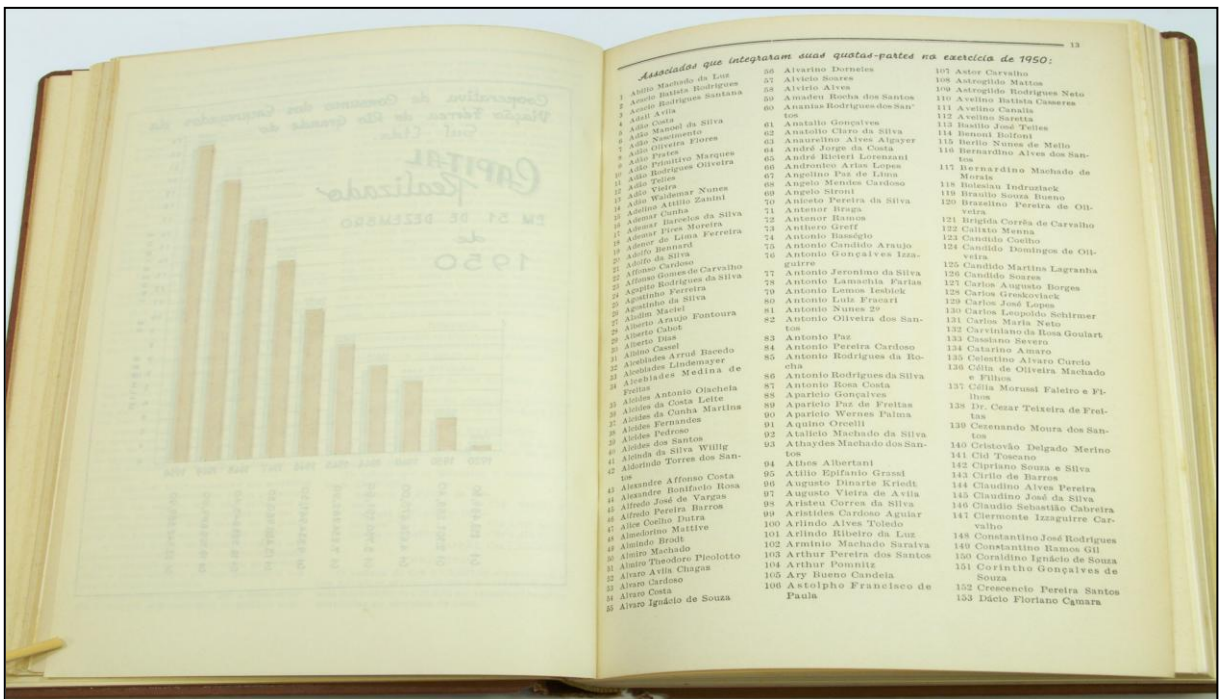 13
Associados que integraram suas quotas-partes no exercício de 1950:
1 Abilio Machado da Luz
2 Acacio Batista Rodrigues
3 Acacio Rodrigues Santana
4 Adail Avila
5 Adão Costa
6 Adão Manoel da Silva
7 Adão Nascimento
8 Adão Oliveira Flores
9 Adão Prates
10 Adão Primitivo Marques
11 Adão Rodrigues Oliveira
12 Adão Telles
13 Adão Vieira
14 Adão Waldemar Nunes
15 Adelino Attilio Zanini
16 Ademar Cunha
17 Ademar Barcelos da Silva
18 Ademar Pires Moreira
19 Adenor de Lima Ferreira
20 Adolfo Bennard
21 Adolfo da Silva
22 Affonso Cardoso
23 Affonso Gomes de Carvalho
24 Agapito Rodrigues da Silva
25 Agostinho Ferreira
26 Agostinho da Silva
27 Aladim Maciel
28 Alberto Araujo Fontoura
29 Alberto Cabot
30 Alberto Dias
31 Albino Cassel
32 Alcebiades Arrué Bacedo
33 Alcebiades Lindemayer
34 Alcebiades Medina de
Freitas
35 Alcides Antonio Olachela
36 Alcides da Costa Leite
37 Alcides da Cunha Martins
38 Alcides Fernandes
39 Alcides Pedroso
40 Alcides dos Santos
41 Alcinda da Silva Willig
42 Aldorindo Torres dos San-
tos
43 Alexandre Affonso Costa
44 Alexandre Bonifacio Rosa
45 Alfredo José de Vargas
46 Alfredo Pereira Barros
47 Alice Coelho Dutra
48 Almedorino Mattive
49 Almindo Brodt
50 Almiro Machado
51 Almiro Theodoro Picolotto
52 Alvaro Avila Chagas
53 Alvaro Cardoso
54 Alvaro Costa
55 Alvaro Ignácio de Souza
56 Alvarino Dorneles
57 Alvicio Soares
58 Alvirio Alves
59 Amadeu Rocha dos Santos
60 Ananias Rodrigues dos San-
tos
61 Anatalio Gonçalves
62 Anatolio Claro da Silva
63 Anaurelino Alves Algayer
64 André Jorge da Costa
65 André Ricieri Lorenzani
66 Andronico Arias Lopes
67 Angelino Paz de Lima
68 Angelo Mendes Cardoso
69 Angelo Sironi
70 Aniceto Pereira da Silva
71 Antenor Braga
72 Antenor Ramos
73 Anthero Greff
74 Antonio Basségio
75 Antonio Candido Araujo
76 Antonio Gonçalves Izza-
guirre
77 Antonio Jeronimo da Silva
78 Antonio Lamachia Farias
79 Antonio Lemos Iesbick
80 Antonio Luiz Fracari
81 Antonio Nunes 2º
82 Antonio Oliveira dos San-
tos
83 Antonio Paz
84 Antonio Pereira Cardoso
85 Antonio Rodrigues da Ro-
cha
86 Antonio Rodrigues da Silva
87 Antonio Rosa Costa
88 Aparicio Gonçalves
89 Aparicio Paz de Freitas
90 Aparicio Wernes Palma
91 Aquino Orcelli
92 Atalicio Machado da Silva
93 Athaydes Machado dos San-
tos
94 Athos Albertani
95 Atilio Epifanio Grassi
96 Augusto Dinarte Kriedt
97 Augusto Vieira de Avila
98 Aristeu Correa da Silva
99 Aristides Cardoso Aguiar
100 Arlindo Alves Toledo
101 Arlindo Ribeiro da Luz
102 Arminio Machado Saraiva
103 Arthur Pereira dos Santos
104 Arthur Pomnitz
105 Ary Bueno Candela
106 Astolpho Francisco de
Paula
107 Astor Carvalho
108 Astrogildo Mattos
109 Astrogildo Rodrigues Neto
110 Avelino Batista Casseres
111 Avelino Canalis
112 Avelino Saretta
113 Basilio José Telles
114 Benoni Bolfoni
115 Berlio Nunes de Mello
116 Bernardino Alves dos San-
tos
117 Bernardino Machado de
Morais
118 Boleslau Indruziack
119 Braulio Souza Bueno
120 Brazelino Pereira de Oli-
veira
121 Brigida Corrêa de Carvalho
122 Calixto Menna
123 Candido Coelho
124 Candido Domingos de Oli-
veira
125 Candido Martins Lagranha
126 Candido Soares
127 Carlos Augusto Borges
128 Carlos Greskoviack
129 Carlos José Lopes
130 Carlos Leopoldo Schirmer
131 Carlos Maria Neto
132 Carviniano da Rosa Goulart
133 Cassiano Severo
134 Catarino Amaro
135 Celestino Alvaro Curcio
136 Célia de Oliveira Machado
e Filhos
137 Célia Morussi Faleiro e Fi-
lhos
138 Dr. Cezar Teixeira de Frei-
tas
139 Cezenando Moura dos San-
tos
140 Cristovão Delgado Merino
141 Cid Toscano
142 Cipriano Souza e Silva
143 Cirilo de Barros
144 Claudino Alves Pereira
145 Claudino José da Silva
146 Claudio Sebastião Cabreira
147 Clermonte Izzaguirre Car-
valho
148 Constantino José Rodrigues
149 Constantino Ramos Gil
150 Coraldino Ignácio de Souza
151 Corintho Gonçalves de
Souza
152 Crescencio Pereira Santos
153 Dácio Floriano Camara